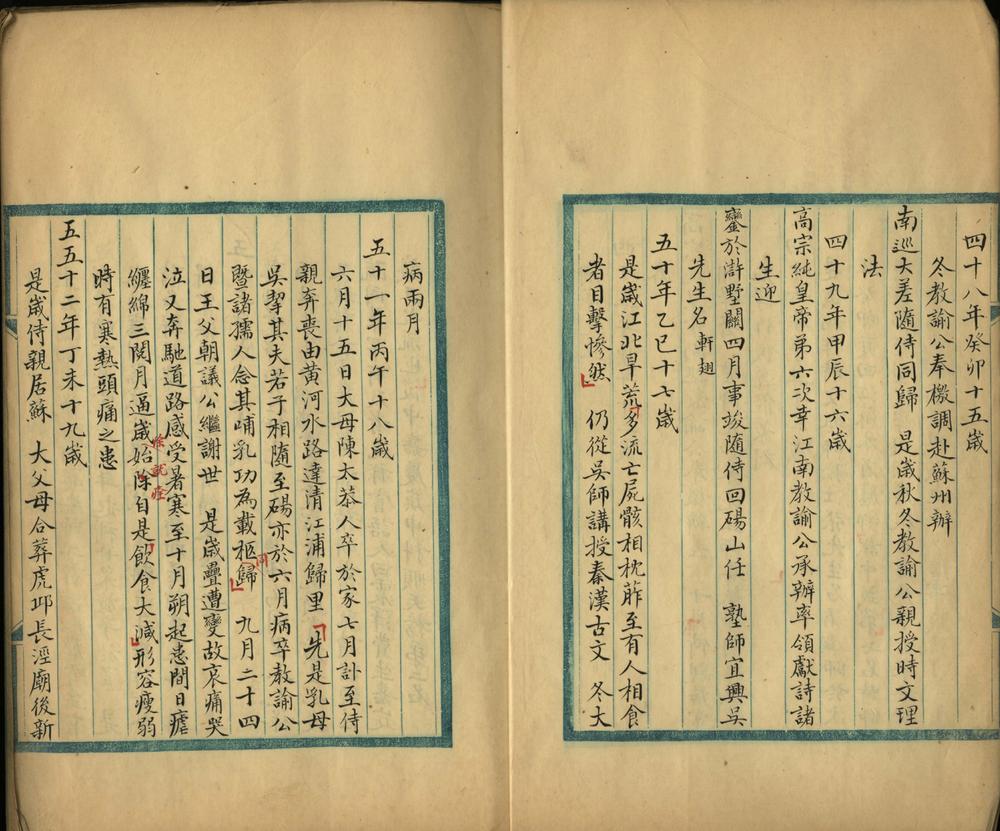 四十八年癸卯十五歲
冬教諭公奉檄調赴蘇州辦
南巡大差隨侍同歸　是歲秋冬教諭公親授時文理
法
四十九年甲辰十六歲
高宗純皇帝第六次幸江南教諭公承辦率領獻詩諸
生迎
鑾於滸墅關四月事竣隨侍回碭山任　塾師宜興吳
先生名軒翅
五十年乙巳十七歲
是歲江北旱荒多流亡屍骸相枕藉至有人相食
者目擊慘然　仍從吳師講授秦漢古文　冬大
病兩月
五十一年丙午十八歲
六月十五日大母陳太恭人卒於家七月訃至侍
親奔喪由黃河水路達清江浦歸里　先是乳母
吳挈其夫若子相隨至碭亦於六月病卒教諭公
暨諸孺人念其哺乳功為載柩同歸　九月二十四
日王父朝議公繼謝世　是歲疊遭變故哀痛哭
泣又奔馳道路感受暑寒至十月朔起患間日瘧
纏綿三閱月逼歲始除自是飲食大減形容瘦弱
徐就痊
時有寒熱頭痛之患
五五十二年丁未十九歲
是歲侍親居蘇　大父母合葬虎邱長涇廟後新